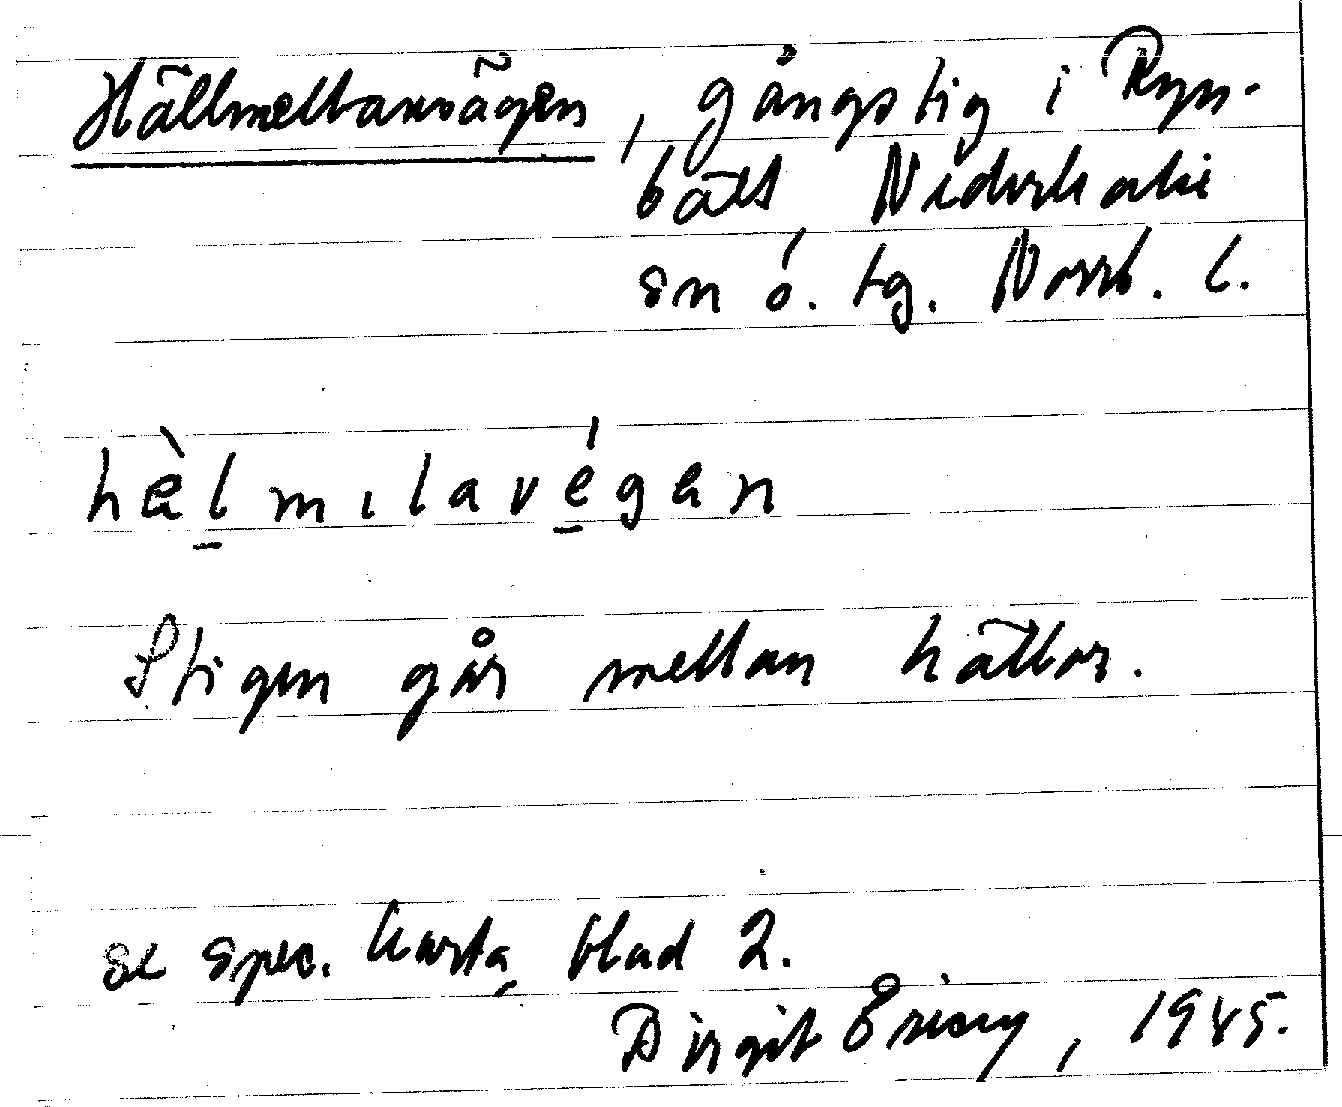 Hällmellanvägen, gångstig i Ryn-
bält Nederkalix
sn ö. tg. Norrb. l.
hèlmılavégen
Stigen går mellan hällor.
se spec. karta, blad 2.
Birgit Falck, 1985.